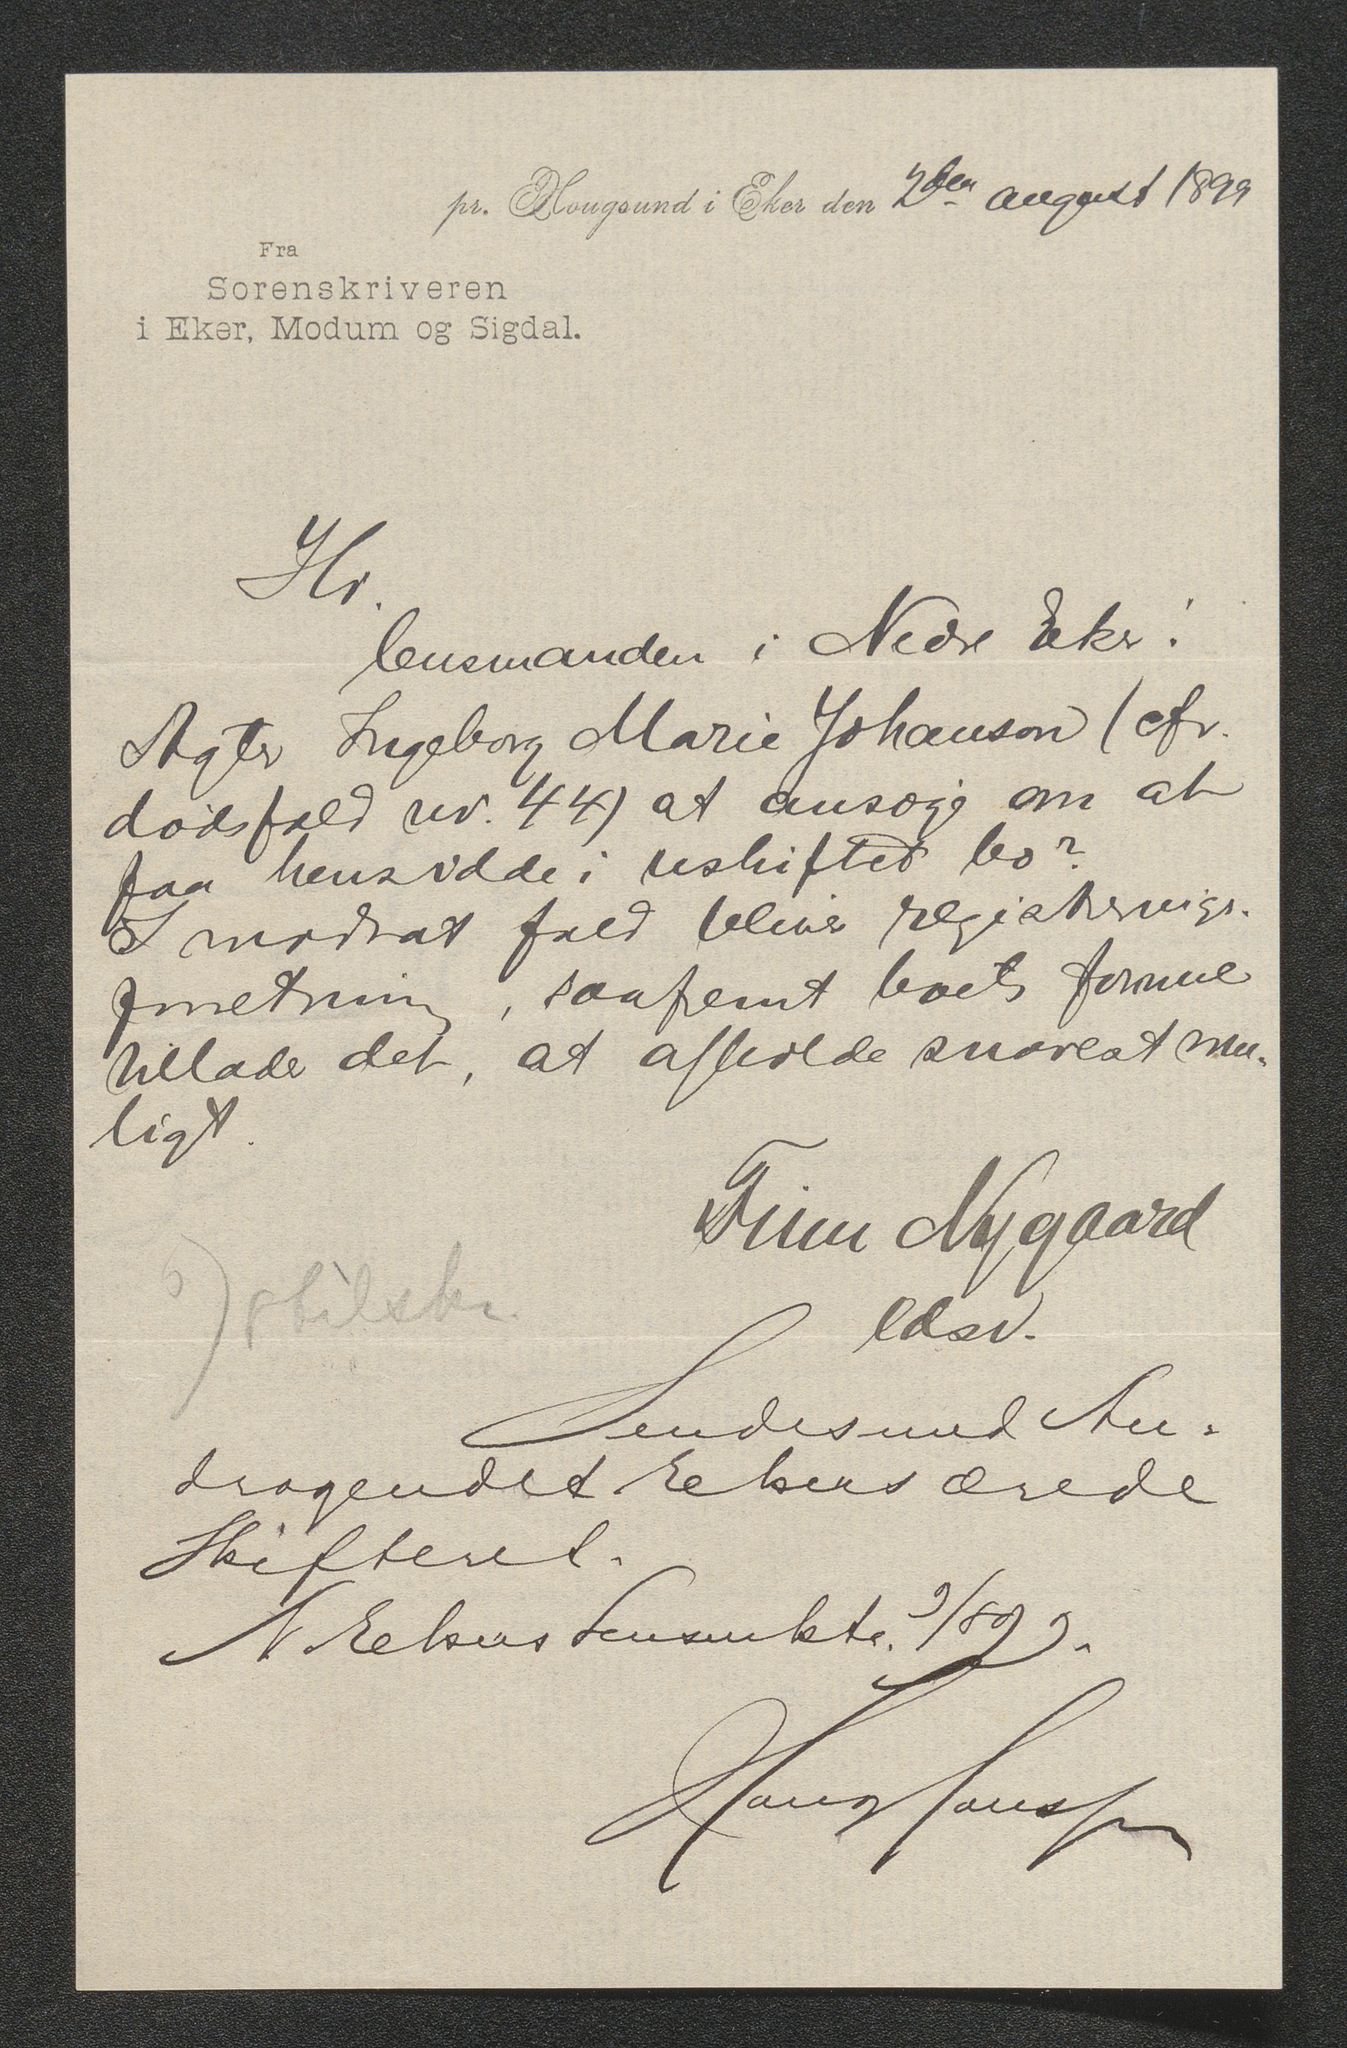 pr. Hougsund i Eker den 2den august 1899
Fra
Sorenskriveren
i Eker, Modum og Sigdal.
Hr.
lensmanden i Nedre Eker!
Agter Ingeborg Marie Johanson (cfr.
dødsfald nr. 44) at ansøge om at
faa hensidde i uskiftet bo?
I modsat fald bliver registrerings-
forretning, saafremt boets formue
tillader det, at afholde snarest mu-
ligt.
Finn Nygaard
edsv.
Sendes med An-
dragendet Ekers ærede
Skifteret.
N. Ekers Lensmktr. 9/8 99.
Hans Hanssen